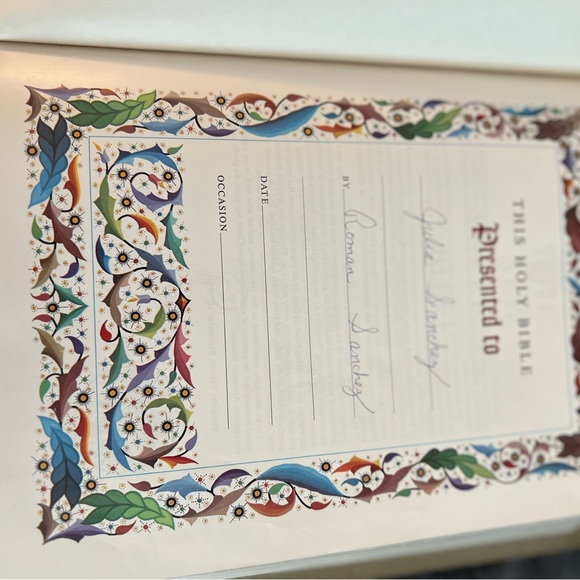 THIS HOLY BIBLE
Presented to
Julie Sanchez
BY Roman Sanchez
DATE
OCCASION